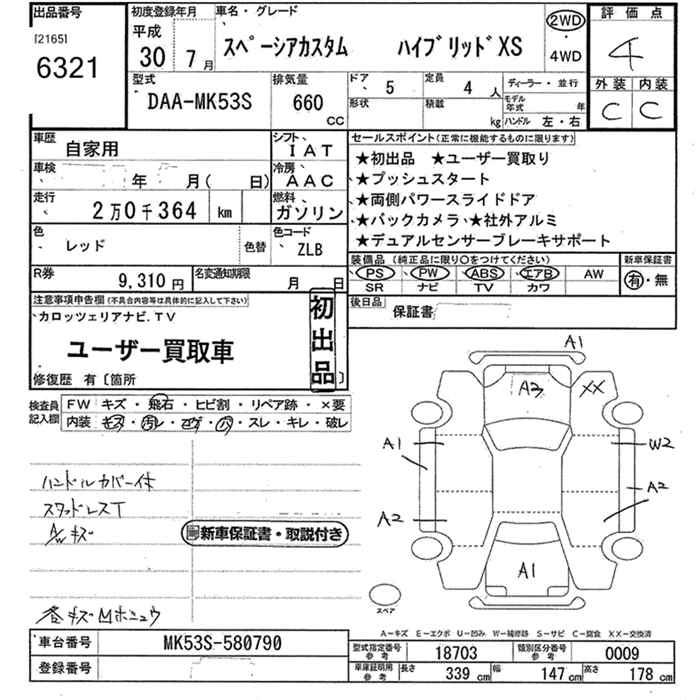 出品番号
[2165]
6321
初度登録年月
平成
30年 7月
車名・グレード
スペーシアカスタム ハイブリッドXS
2WD
・
4WD
評価点
4
外装 内装
C C
型式
DAA-MK53S
排気量
660
CC
ドア
5
形状
定員
4 人
積載
kg
ディーラー・並行
モデル年式 年
ハンドル 左・右
車歴
自家用
シフト
IAT
車検
年 月( 日)
冷房
AAC
走行
2万0千364 km
燃料
ガソリン
色
レッド
色替
色コード
ZLB
R券
9,310円
名変通知期限
月 日
セールスポイント(正常に機能するものに限ります)
★初出品 ★ユーザー買取り
★プッシュスタート
★両側パワースライドドア
★バックカメラ★社外アルミ
★デュアルセンサーブレーキサポート
装備品(純正品に限り○をつけてください)
PS PW ABS エアB AW
SR ナビ TV カワ
新車保証書
有・無
後日品
保証書
注意事項申告欄(不具合内容等は具体的に記入して下さい)
カロッツェリアナビ.TV
ユーザー買取車
初出品
修復歴 有〔箇所 〕
検査員記入欄
FW キズ・飛石・ヒビ割・リペア跡・×要
内装 キズ・汚レ・コゲ・穴・スレ・キレ・破レ
ハンドルカバー一体
スタッドレスT
A/wキズ
新車保証書・取説付き
A1
A3
XX
A1
W2
A2
A2
A1
スペア
A-キズ E-エクボ U-凹み W-補修跡 S-サビ C-腐食 XX-交換済
車台番号
MK53S-580790
登録番号
型式指定番号
参考
18703
類別区分番号
参考
0009
車庫証明用
参考
長さ 339 cm 幅 147 cm 高さ 178 cm